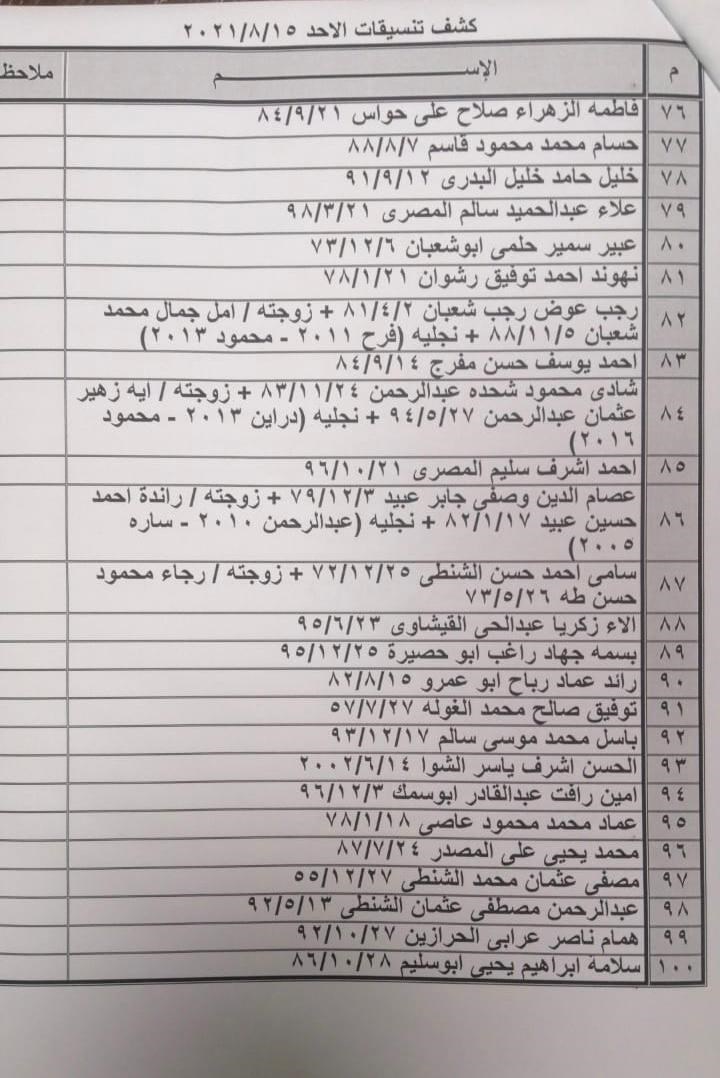 كشف تنسيقات الاحد ٢٠٢١/٨/١٥
م الإســـــــــم ملاحظ
٧٦ فاطمه الزهراء صلاح على حواس ٨٤/٩/٢١
٧٧ حسام محمد محمود قاسم ٨٨/٨/٧
٧٨ خليل حامد خليل البدرى ٩١/٩/١٢
٧٩ علاء عبدالحميد سالم المصرى ٩٨/٣/٢١
٨٠ عبير سمير حلمى ابوشعبان ٧٣/١٢/٦
٨١ نهوند احمد توفيق رشوان ٧٨/١/٢١
٨٢ رجب عوض رجب شعبان ٨١/٤/٢ + زوجته / امل جمال محمد
شعبان ٨٨/١١/٥ + نجليه (فرح ٢٠١١ - محمود ٢٠١٣)
٨٣ احمد يوسف حسن مفرج ٨٤/٩/١٤
٨٤ شادى محمود شحده عبدالرحمن ٨٣/١١/٢٤ + زوجته / ايه زهير
عثمان عبدالرحمن ٩٤/٥/٢٧ + نجليه (دراين ٢٠١٣ - محمود
٢٠١٦)
٨٥ احمد اشرف سليم المصرى ٩٦/١٠/٢١
٨٦ عصام الدين وصفى جابر عبيد ٧٩/١٢/٣ + زوجته / راندة احمد
حسين عبيد ٨٢/١/١٧ + نجليه (عبدالرحمن ٢٠١٠ - ساره
٢٠٠٥)
٨٧ سامى احمد حسن الشنطى ٧٢/١٢/٢٥ + زوجته / رجاء محمود
حسن طه ٧٣/٥/٢٦
٨٨ الاء زكريا عبدالحى القيشاوى ٩٥/٦/٢٣
٨٩ بسمه جهاد راغب ابو حصيرة ٩٥/١٢/٢٥
٩٠ رائد عماد رباح ابو عمرو ٨٢/٨/١٥
٩١ توفيق صالح محمد الغوله ٥٧/٧/٢٧
٩٢ باسل محمد موسى سالم ٩٣/١٢/١٧
٩٣ الحسن اشرف ياسر الشوا ٢٠٠٢/٦/١٤
٩٤ امين رافت عبدالقادر ابوسمك ٩٦/١٢/٣
٩٥ عماد محمد محمود عاصى ٧٨/١/١٨
٩٦ محمد يحيى على المصدر ٨٧/٧/٢٤
٩٧ مصفى عثمان محمد الشنطى ٥٥/١٢/٢٧
٩٨ عبدالرحمن مصطفى عثمان الشنطى ٩٢/٥/١٣
٩٩ همام ناصر عرابى الحرازين ٩٢/١٠/٢٧
١٠٠ سلامة ابراهيم يحيى ابوسليم ٨٦/١٠/٢٨